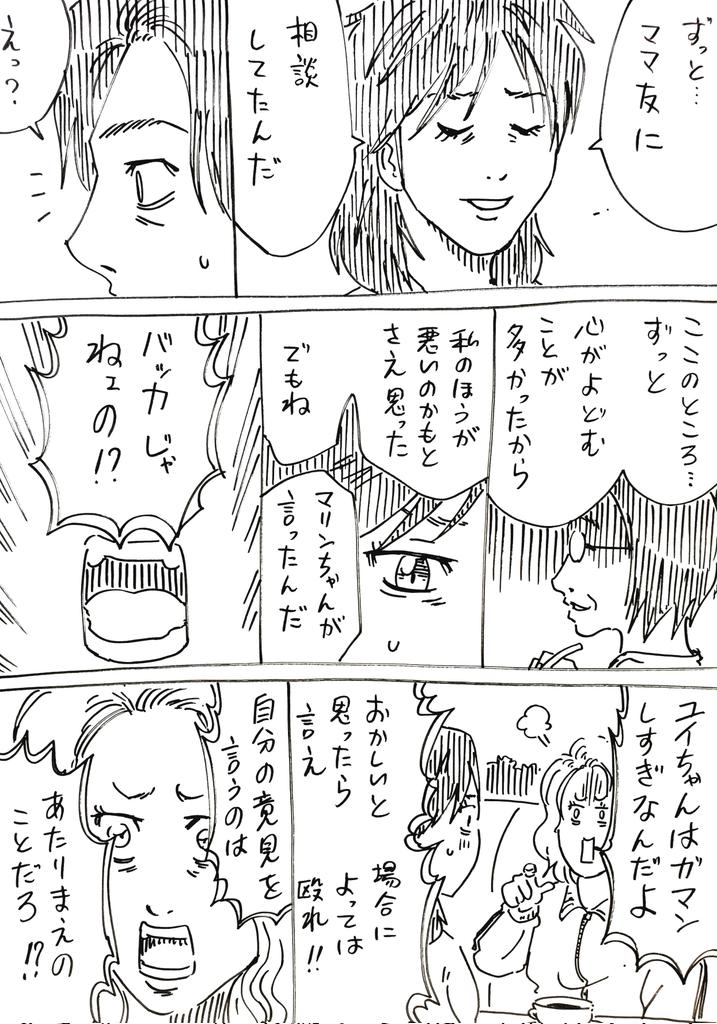 ずっと…
ママ友に
相談
してたんだ
えっ?
ここのところ…
ずっと
心がよどむ
ことが
多かったから
私のほうが
悪いのかもと
さえ思った
でもね
マリンちゃんが
言ったんだ
バッカじゃ
ねェの!?
ユイちゃんはガマン
しすぎなんだよ
おかしいと
思ったら
言え
場合に
よっては
殴れ!!
自分の意見を
言うのは
あたりまえの
ことだろ!?